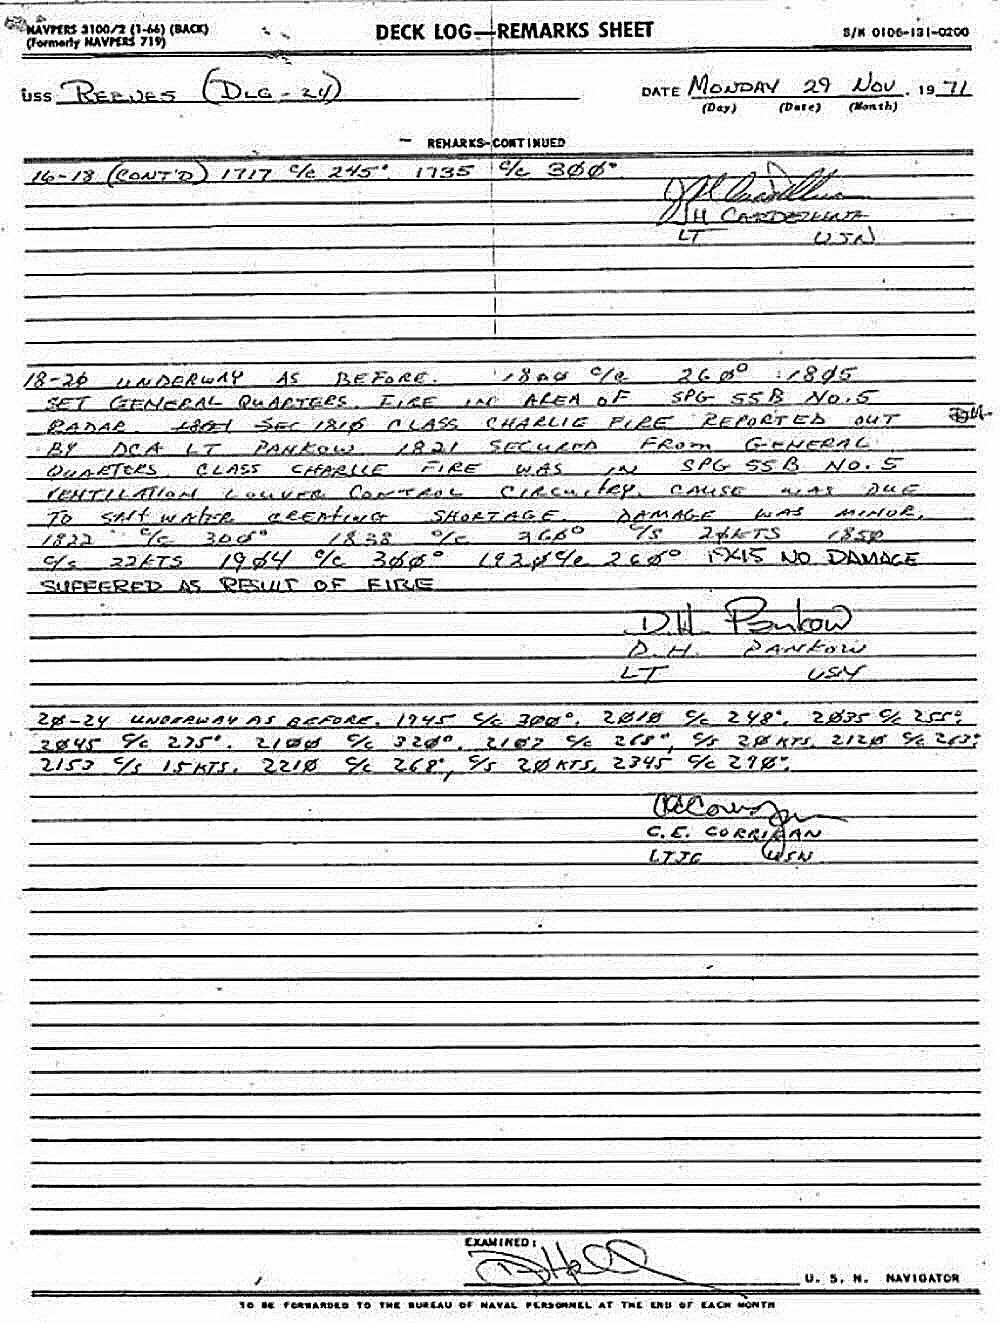 NAVPERS 3100/2 (1-66) (BACK)
(Formerly NAVPERS 719)
DECK LOG—REMARKS SHEET
S/N 0106-131-0200
USS REEVES (DLG-24)
DATE MONDAY 29 NOV. 1971
(Day) (Date) (Month)
REMARKS-CONTINUED
16-18 (CONT'D) 1717 C/C 245°. 1735 C/C 3ØØ°.
LT USN
18-2Ø UNDERWAY AS BEFORE. 18ØØ C/C 26Ø° 18Ø5
SET GENERAL QUARTERS. FIRE IN AREA OF SPG 55B NO.5
RADAR. SEC 181Ø CLASS CHARLIE FIRE REPORTED OUT
BY DCA LT PANKOW 1821 SECURED FROM GENERAL
QUARTERS. CLASS CHARLIE FIRE WAS IN SPG 55B NO.5
VENTILATION LOUVER CONTROL CIRCUITRY. CAUSE WAS DUE
TO SALT WATER CREATING SHORTAGE. DAMAGE WAS MINOR.
1822 C/C 3ØØ° 1838 C/C C/S 2ØKTS 185Ø
C/S 22KTS 19Ø4 C/C 3ØØ° 192Ø C/C 26Ø° NO DAMAGE
SUFFERED AS RESULT OF FIRE
D.H. Pankow
D.H. PANKOW
LT USN
2Ø-24 UNDERWAY AS BEFORE. 1945 C/C 3ØØ°. 2Ø1Ø C/C 248°. 2Ø35 C/C 255°.
2Ø45 C/C 275°. 21ØØ C/C 32Ø°. 2107 C/C 268°, C/S 2Ø KTS. 212Ø C/C 263°.
2153 C/S 15 KTS. 221Ø C/C 268°, C/S 2Ø KTS. 2345 C/C 29Ø°.
C.E. CORRIGAN
LTJG USN
EXAMINED:
U. S. N. NAVIGATOR
TO BE FORWARDED TO THE BUREAU OF NAVAL PERSONNEL AT THE END OF EACH MONTH